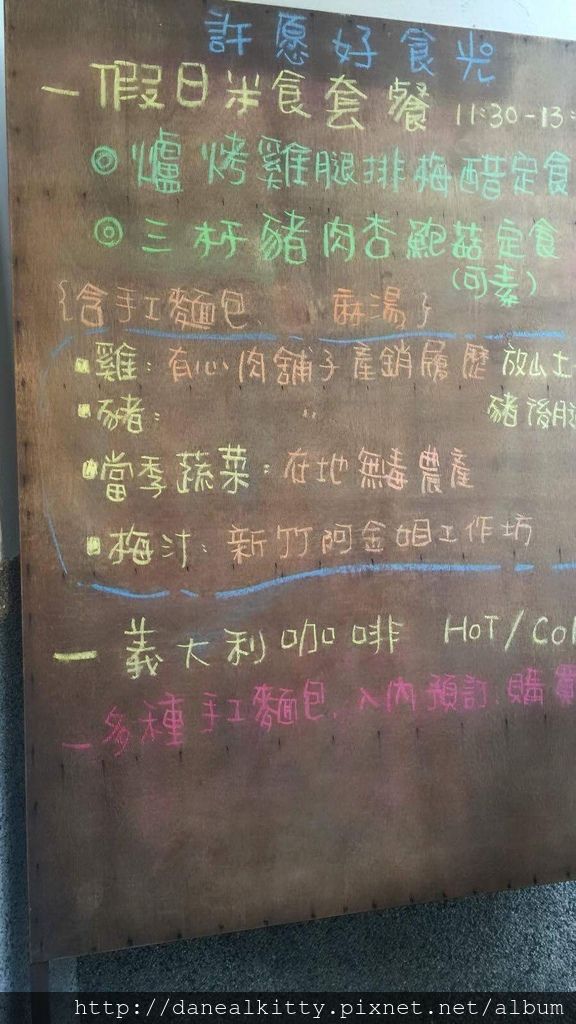 許愿好食光
一假日米食套餐 11:30-13:
◎爐烤雞腿排梅醋定食
◎三杯豬肉杏鮑菇定食
(可素)
{含手工麵包、 麻湯}
▪雞:有心肉舖子產銷履歷 放山土
▪豬: 〃 豬後腿
▪當季蔬菜:在地無毒農產
▪梅汁:新竹阿金姐工作坊
一義大利咖啡 HOT/Col
一多種手工麵包、入內預訂、購買
http://danealkitty.pixnet.net/album